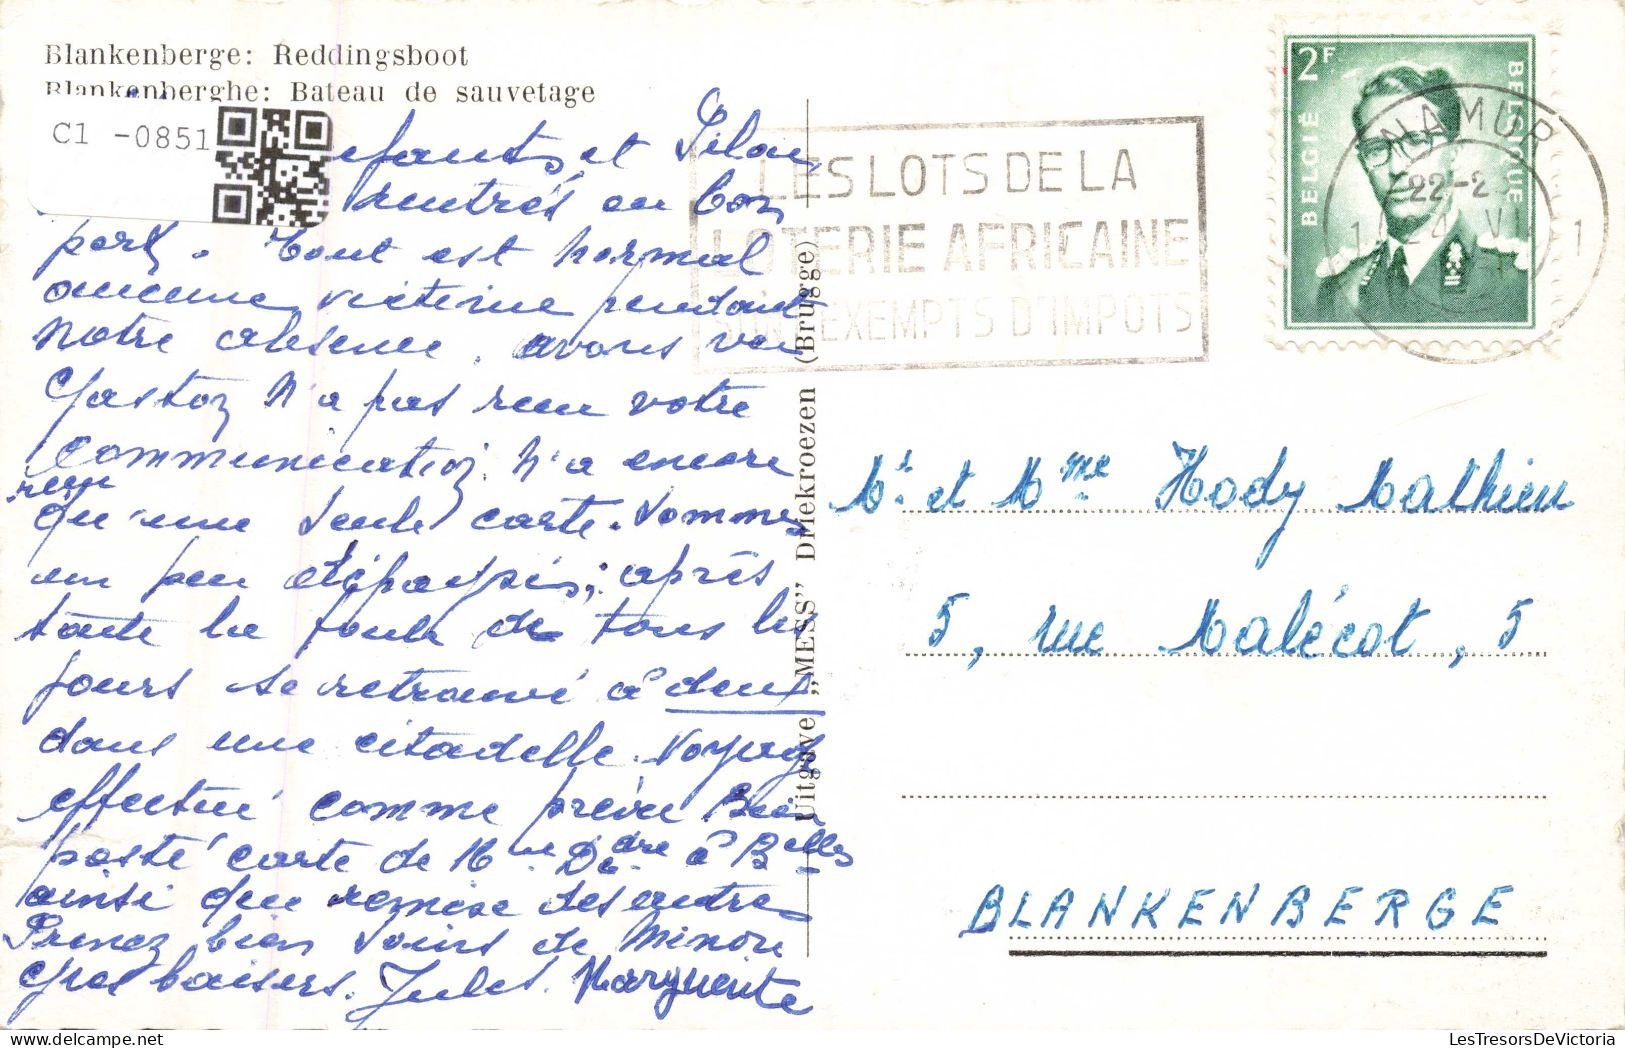 Blankenberge: Reddingsboot
Blankenberghe: Bateau de sauvetage
C1 -0851
rentrés en bon
port. Tout est normal
aucune victime pendant
notre absence, avons vu
Gaston n'a pas reçu votre
communication. N'a encore
reçu
qu'une seule carte. Sommes
un peu dépaysés, après
toute la foule de tous les
jours se retrouvé à deux
dans une citadelle. Voyage
effectué comme prévu Bien
posté carte de à Belles
ainsi que remise des autres
Prenez bien soins de Minou
Gros baisers. Jules. Marguerite
Uitgave „MESS” Driekroezen (Brugge)
LES LOTS DE LA
LOTERIE AFRICAINE
SONT EXEMPTS D'IMPOTS
2F
BELGIË
BELGIQUE
NAMUR
1 1
22-23
Mr. et Mme Hody Mathieu
5, rue Malécot, 5
BLANKENBERGE
LesTresorsDeVictoria